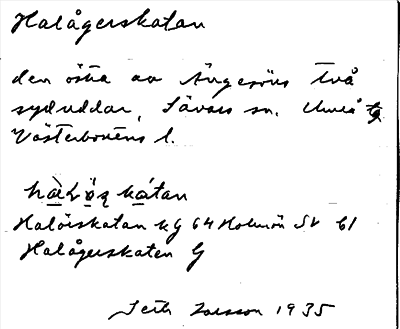 Halågerskatan
den östra av Ängesöns två
syduddar, Sävars sn. Umeå tg
Västerbottens l.
hàLög kátan
Halörskatan kg 64 Holmön SV bl
Halågerskaten G
Seth Larsson 1935